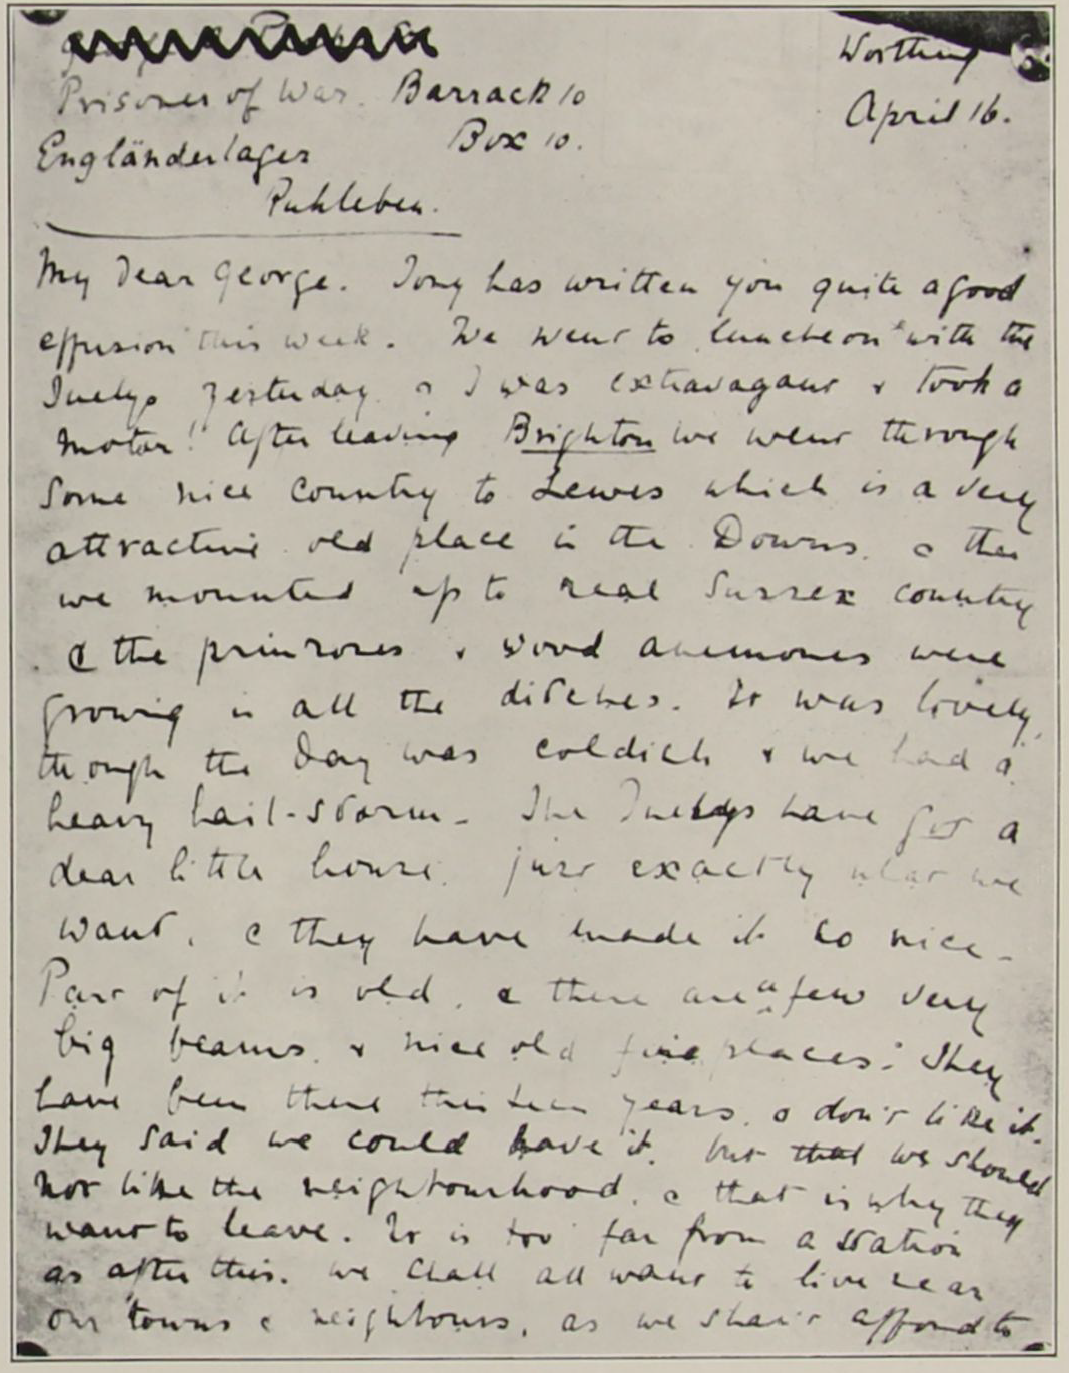 Worthing
Prisoner of War. Barrack 10
April 16.
Box 10.
Engländerlager
Ruhleben.
My Dear George. Tony has written you quite a good
effusion this week. We went to luncheon with the
yesterday & I was extravagant & took a
motor! After leaving Brighton we went through
Some nice country to Lewes which is a very
attractive old place in the Downs. & then
we mounted up to real Sussex country
& the primroses & wood anemones were
growing in all the ditches. It was lovely,
though the day was coldish & we had a
heavy hail-storm. The have got a
dear little house, just exactly what we
want, & they have made it so nice.
Part of it is old, & there are a few very
big beams & nice old fireplaces. They
have been there thirteen years, & don't like it.
They said we could have it, but that we should
not like the neighbourhood, & that is why they
want to leave. It is too far from a station
as after this. We shall all want to live near
our towns & neighbours, as we shan't afford to